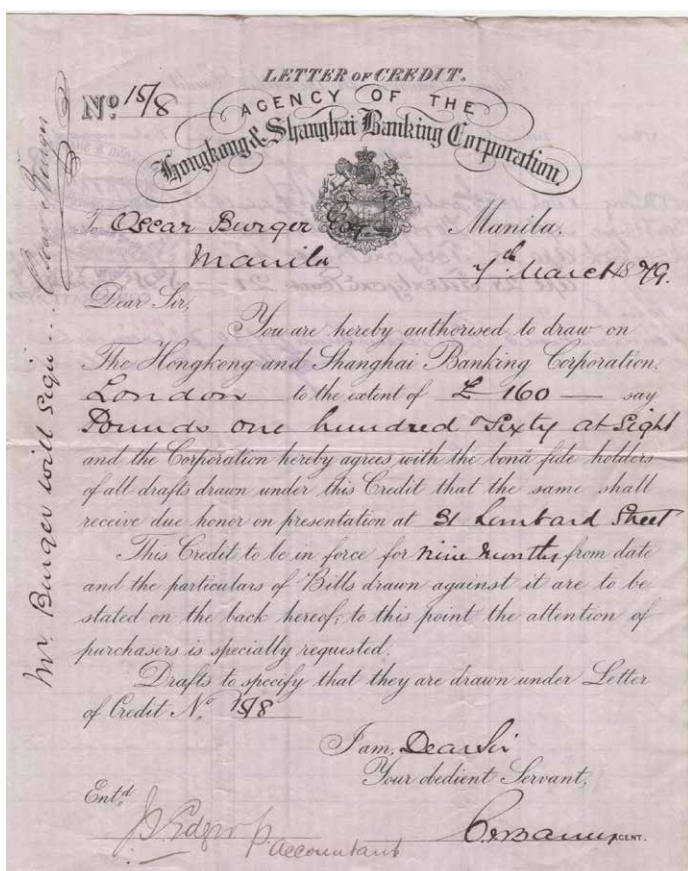 LETTER OF CREDIT.
No. 15/8
AGENCY OF THE
Hongkong & Shanghai Banking Corporation.
To Oscar Burger Esq. Manila.
Manila 7th March 1879.
Dear Sir,
You are hereby authorised to draw on
The Hongkong and Shanghai Banking Corporation.
London to the extent of £ 160 — say
Pounds one hundred & Sixty at Sight
and the Corporation hereby agrees with the bonâ fide holders
of all drafts drawn under this Credit that the same shall
receive due honor on presentation at 31 Lombard Street
This Credit to be in force for nine months from date
and the particulars of Bills drawn against it are to be
stated on the back hereof; to this point the attention of
purchasers is specially requested.
Drafts to specify that they are drawn under Letter
of Credit No. 15/8
I am, Dear Sir
Your obedient Servant,
Entd.
Accountant
AGENT.
Mr. Burger will sign ... Oscar Burger